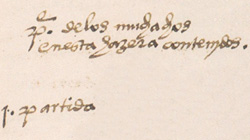 pa. de los muchachos
en esta hazera contenidos.
1. partida